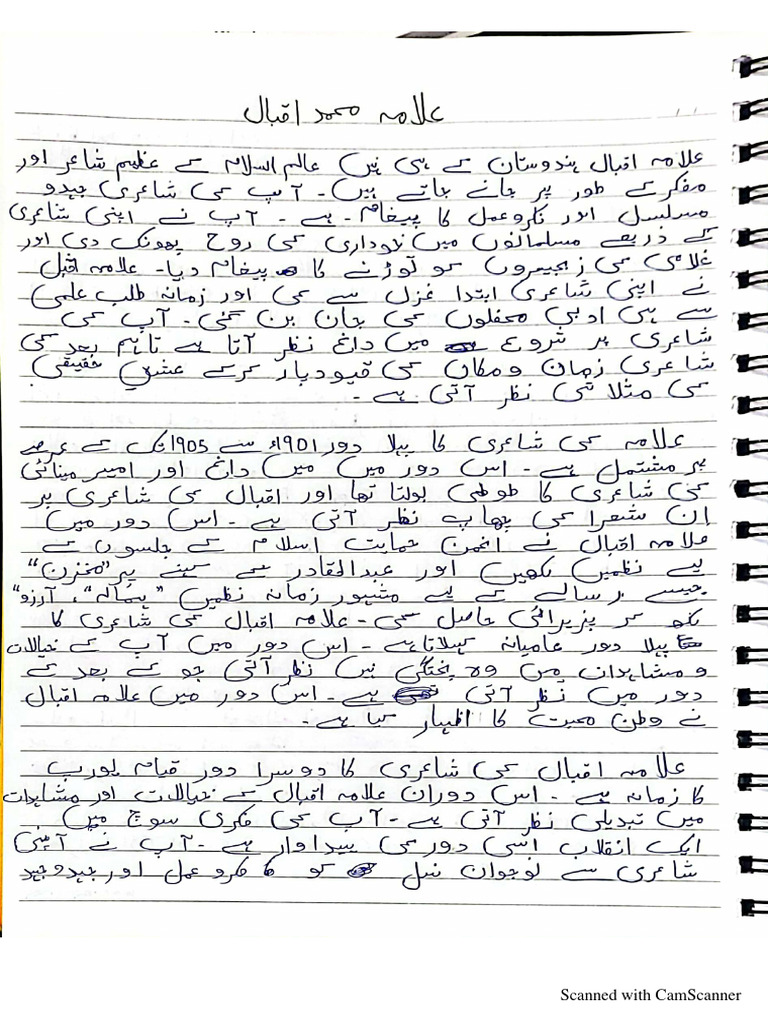 علامہ محمد اقبال
علامہ اقبال ہندوستان کے ہی نہیں عالم اسلام کے عظیم شاعر اور
مفکر کے طور پر جانے جاتے ہیں۔ آپ کی شاعری جہدو
مسلسل اور فکروعمل کا پیغام ہے۔ آپ نے اپنی شاعری
کے ذریعے مسلمانوں میں خوداری کی روح پھونک دی اور
غلامی کی زنجیروں کو توڑنے کا پیغام دیا۔ علامہ اقبال
نے اپنی شاعری ابتدا غزل سے کی اور زمانہ طلب علمی
سے ہی ادبی محفلوں کی جان بن گئی۔ آپ کی
شاعری پر شروع میں داغ نظر آتا ہے تاہم بعد کی
شاعری زمان ومکان کی قیود پار کرکے عشقِ حقیقی
کی متلاشی نظر آتی ہے۔
علامہ کی شاعری کا پہلا دور 1901ء سے 1905 تک کے عرصے
پر مشتمل ہے۔ اس دور میں میں داغ اور امیر مینائی
کی شاعری کا طوطی بولتا تھا اور اقبال کی شاعری پر
اِن شعرا کی چھاپ نظر آتی ہے۔ اس دور میں
علامہ اقبال نے انجمن حمایت اسلام کے جلسوں کے
لیے نظمیں لکھیں اور عبدالقادر کے کہنے پر "مخزن"
جیسے رسالے کے لیے مشہور زمانہ نظمیں "ہمالہ"، آرزو"
لکھ کر پزیرائی حاصل کی۔ علامہ اقبال کی شاعری کا
پہلا دور عامیانہ کہلاتا ہے۔ اس دور میں آپ کے خیالات
و مشاہدات میں وہ پختگی نہیں نظر آتی جو کے بعد کے
دور میں نظر آتی ہے۔ اس دور میں علامہ اقبال
نے وطن محبت کا اظہار کیا ہے۔
علامہ اقبال کی شاعری کا دوسرا دور قیام یورپ
کا زمانہ ہے۔ اس دوران علامہ اقبال کے خیالات اور مشاہدات
میں تبدیلی نظر آتی ہے۔ آپ کی فکری سوچ میں
ایک انقلاب اسی دور کی پیداوار ہے۔ آپ نے اپنی
شاعری سے نوجوان نسل کو فکروعمل اور جہدوجہد
Scanned with CamScanner